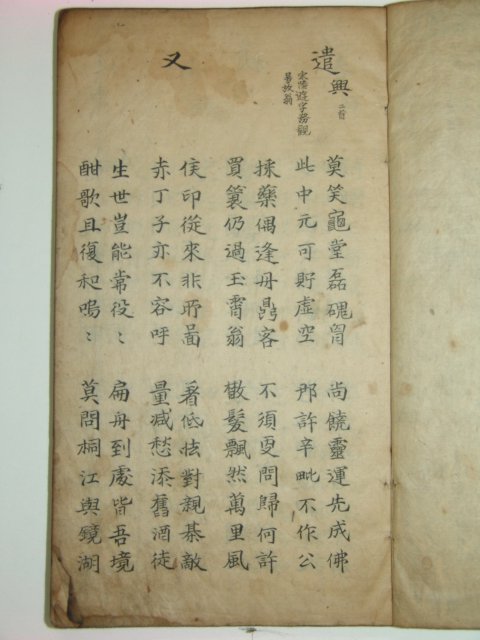 遣興 二首
宋陸游字務觀
号放翁
莫笑龜堂磊磈胷 尚饒靈運先成佛
此中元可貯虛空 那許辛毗不作公
採藥偶逢丹鼎客 不須更問歸何許
買簑仍過玉霄翁 散髮飄然萬里風
又
侯印從來非所啚 著低怯對親棊敵
赤丁子亦不容呼 量减愁添舊酒徒
生世豈能常役〻 扁舟到處皆吾境
酣歌且復和嗚〻 莫問桐江與鏡湖